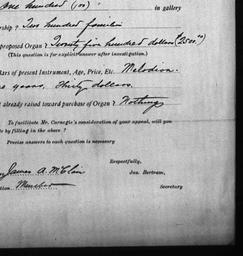 One hundred (100) in gallery
rship, Two hundred fourteen
proposed Organ, Twenty five hundred dollars $2500.00
(This question is for explicit answer after investigation.)
lars of present Instrument, Age, Price, Etc. Melodion.
years, Thirty dollars.
t already raised toward purchase of Organ, Nothing
To facilitate Mr. Carnegie's consideration of your appeal, will you
be by filling in the above?
Precise answers to each question is necessary
Respectfully,
James A. McClain Jas. Bertram,
tion Member Secretary